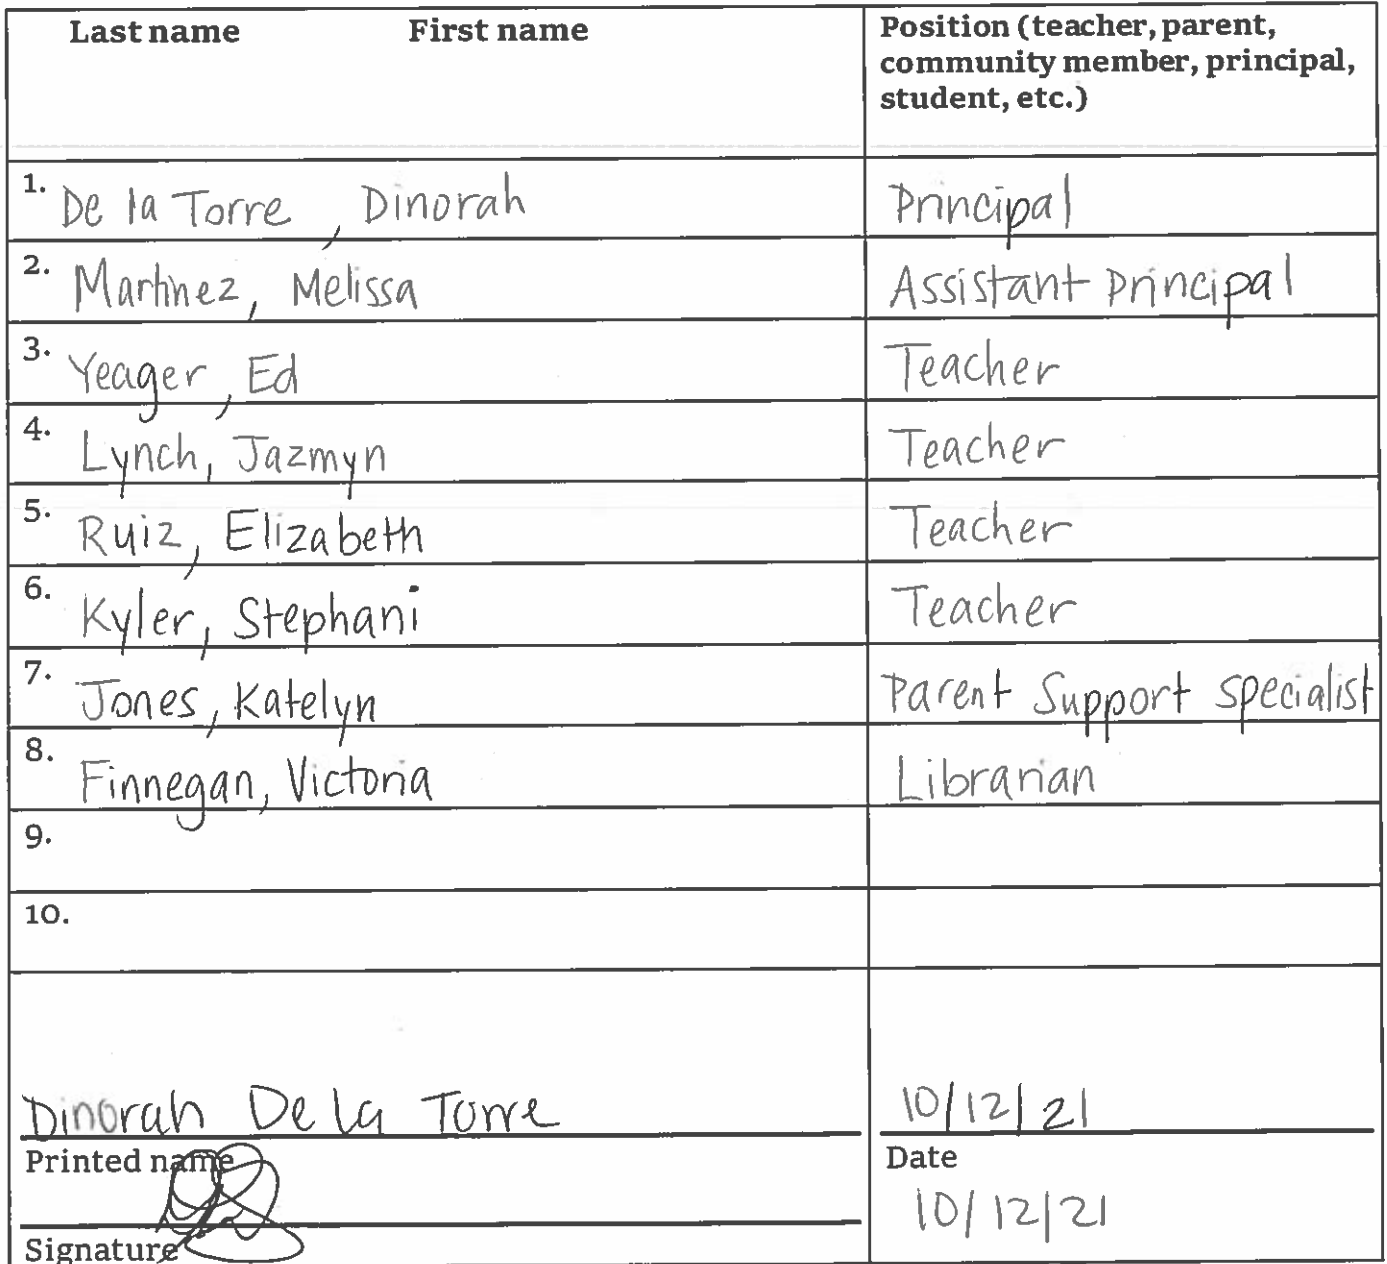 Last name First name Position (teacher, parent,
community member, principal,
student, etc.)
1. De la Torre, Dinorah Principal
2. Martinez, Melissa Assistant Principal
3. Yeager, Ed Teacher
4. Lynch, Jazmyn Teacher
5. Ruiz, Elizabeth Teacher
6. Kyler, Stephani Teacher
7. Jones, Katelyn Parent Support Specialist
8. Finnegan, Victoria Librarian
9.
10.
Dinorah De la Torre 10/12/21
Printed name Date
10/12/21
Signature